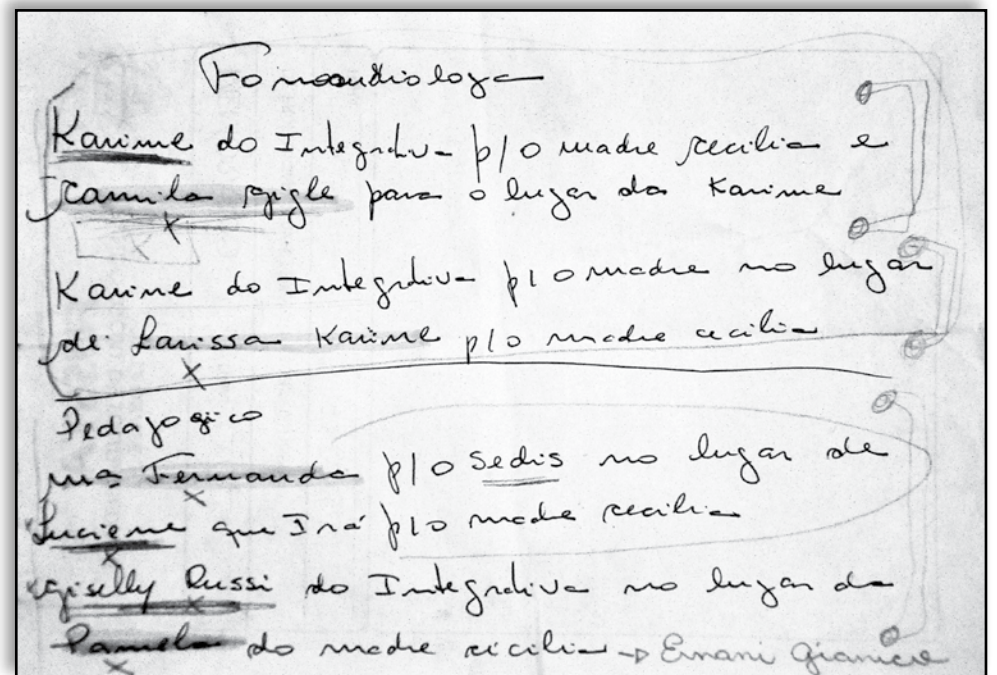 Fonoaudiologa
Karime do Integrativa p/o madre cecilia e
Camila gigle para o lugar da Karime
Karine do Integrativa p/o madre no lugar
de Larissa Karine p/o madre cecilia
Pedagogico
Fernanda p/o Sedis no lugar de
Luciene que Irá p/o madre cecilia
Giselly Russi do Integrativa no lugar da
Pamela do madre cicilia → Ernani